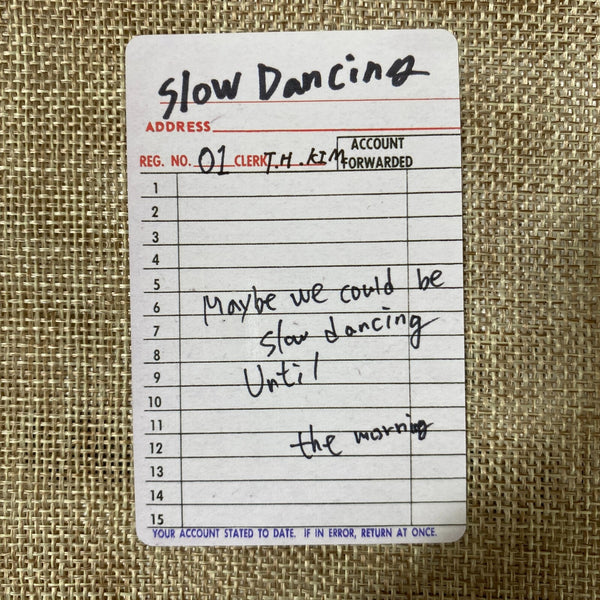 Slow Dancing
ADDRESS
REG. NO. 01 CLERK T.H. KIM ACCOUNT FORWARDED
1
2
3
4
5
6 Maybe we could be
7 slow dancing
8
9 Until
10
11
12 the morning
13
14
15
YOUR ACCOUNT STATED TO DATE. IF IN ERROR, RETURN AT ONCE.